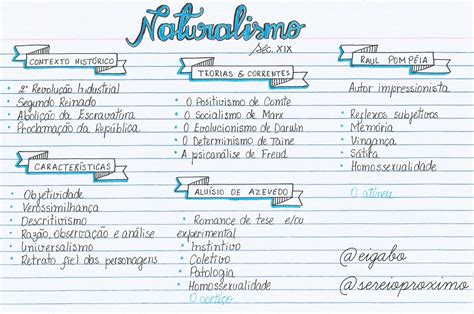 Naturalismo
Séc. XIX
CONTEXTO HISTÓRICO
2ª Revolução Industrial
Segundo Reinado
Abolição da Escravatura
Proclamação da República
TEORIAS & CORRENTES
O Positivismo de Comte
O Socialismo de Marx
O Evolucionismo de Darwin
O Determinismo de Taine
A psicanálise de Freud
RAUL POMPÉIA
Autor impressionista
Reflexos subjetivos
Memória
Vingança
Sátira
Homossexualidade
O ateneu
CARACTERÍSTICAS
Objetividade
Verossimilhança
Descritivismo
Razão, observação e análise
Universalismo
Retrato fiel das personagens
ALUÍSIO DE AZEVEDO
Romance de tese e/ou
experimental
Instintivo
Coletivo
Patologia
Homossexualidade
O cortiço
@eigabo
@sereioproximo